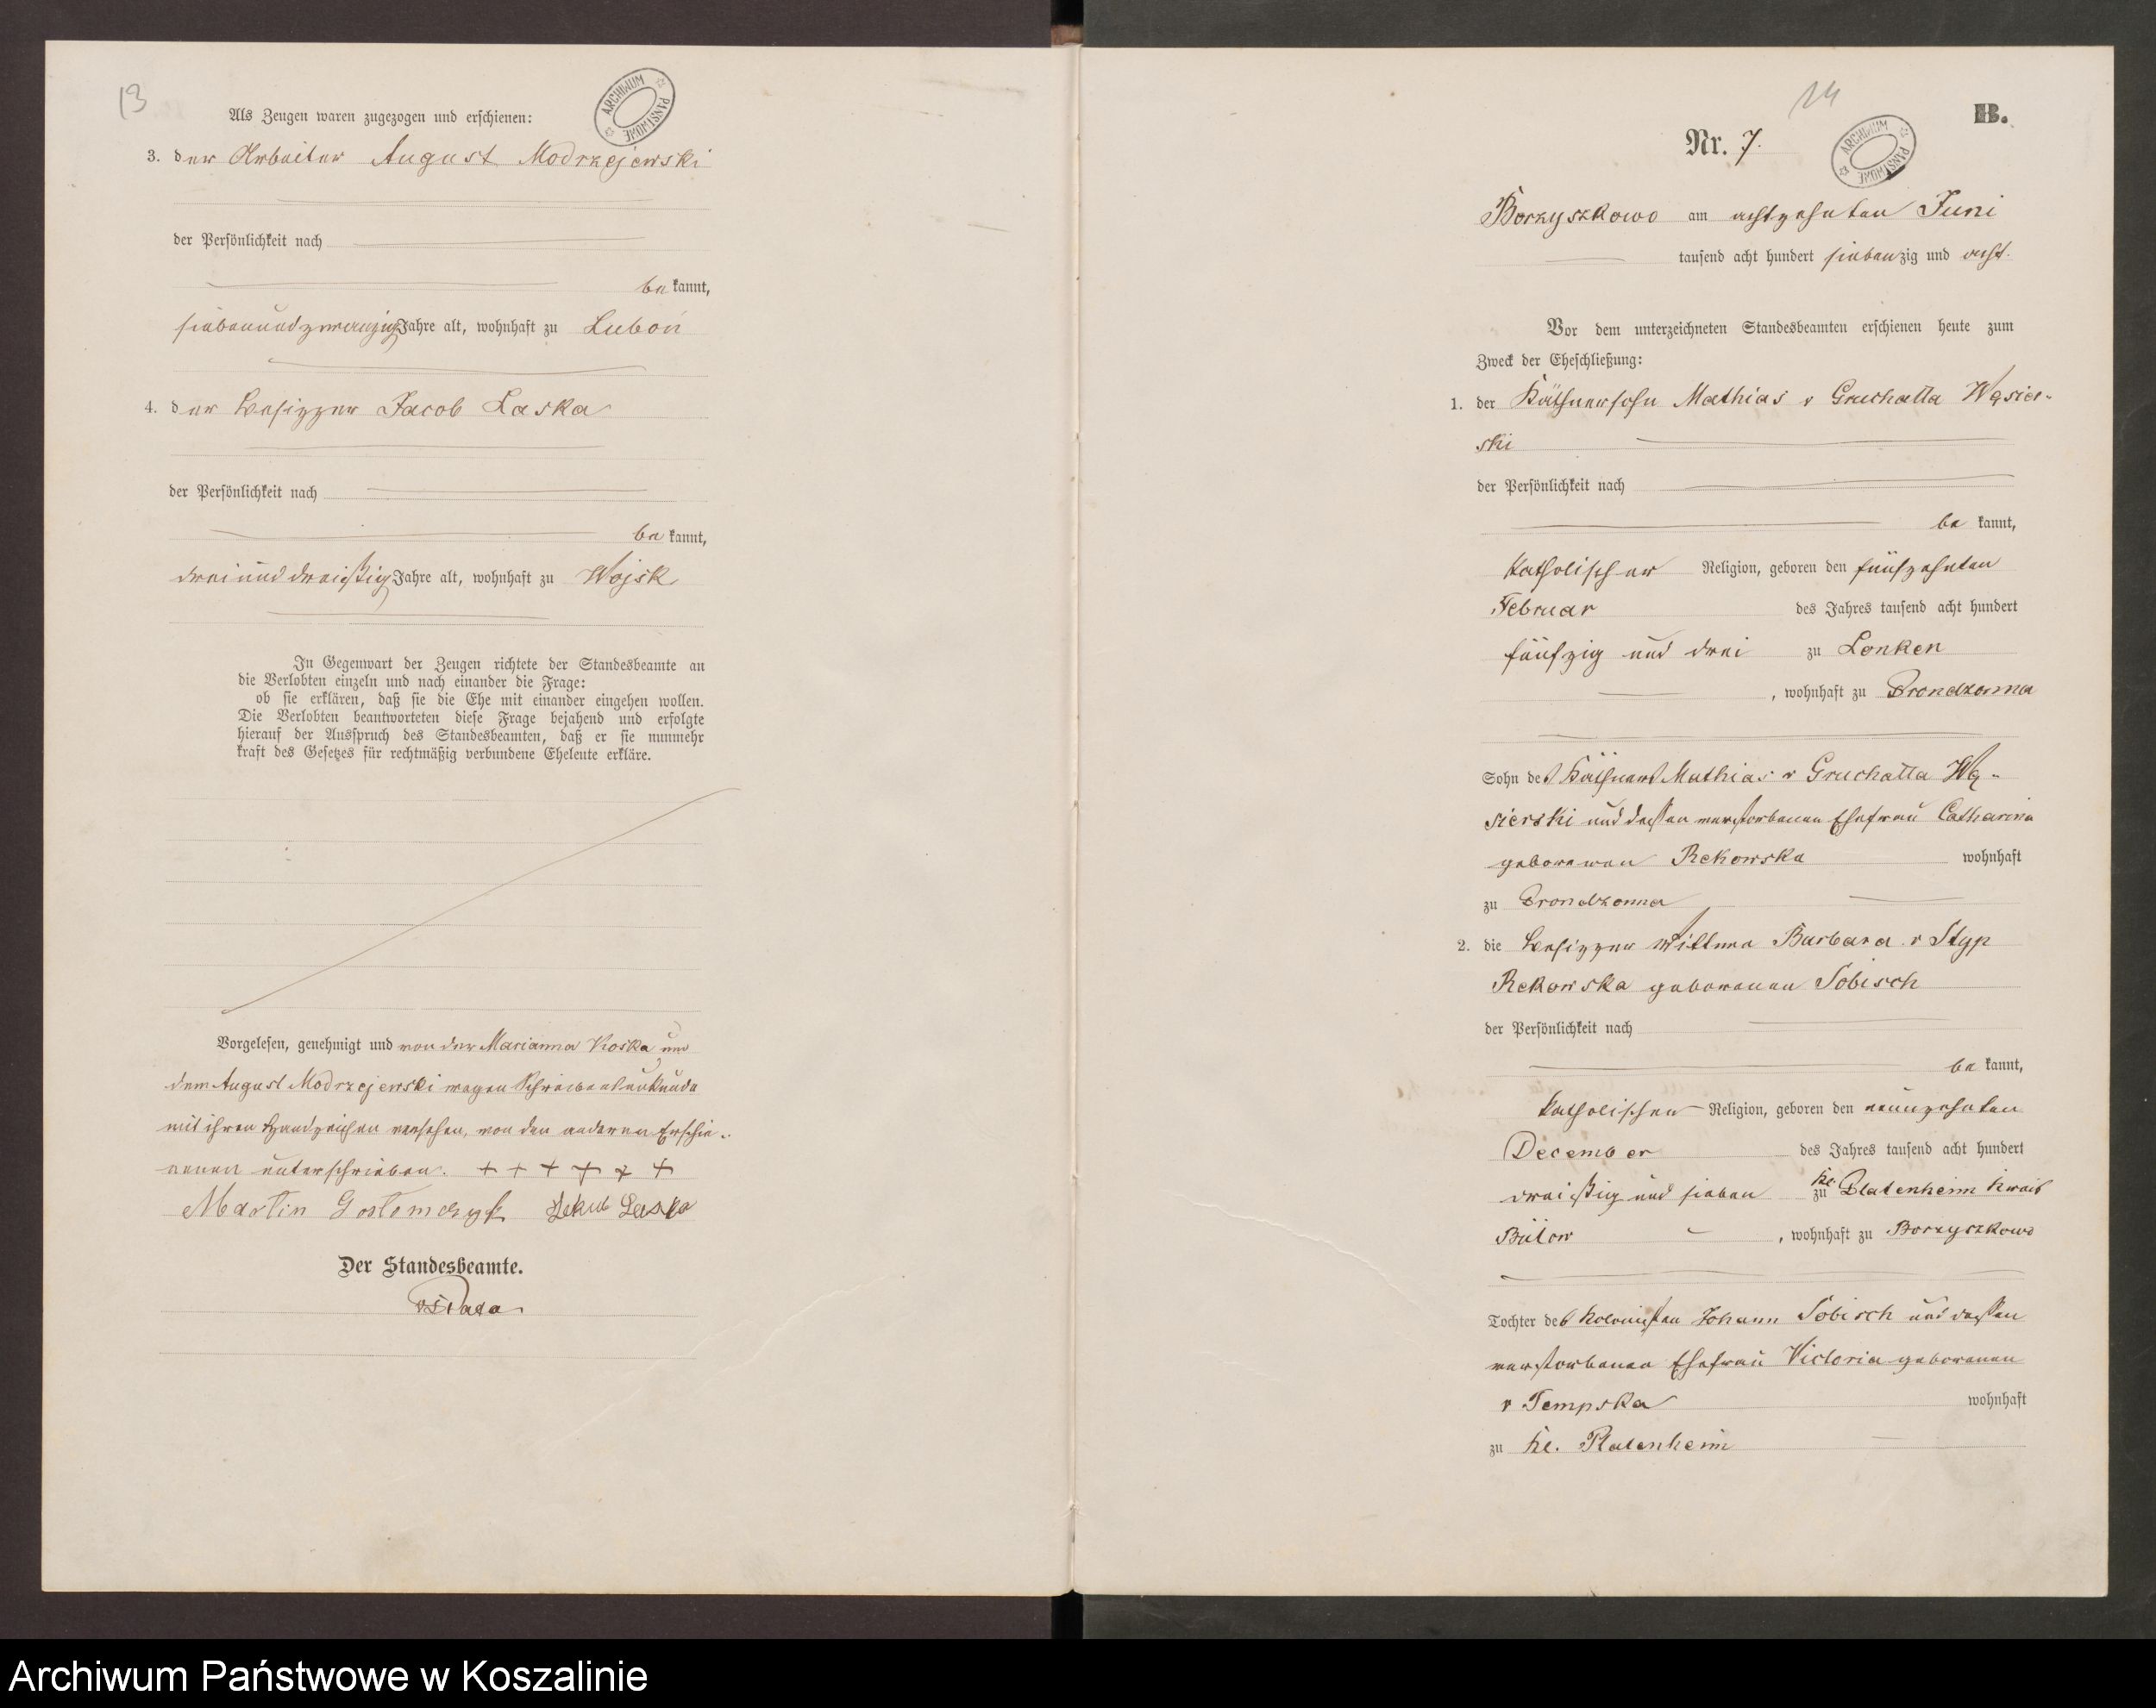 13
ARCHIWUM PAŃSTWOWE
Als Zeugen waren zugezogen und erschienen:
3. der Arbeiter August Modrzejewski
der Persönlichkeit nach
be kannt,
siebenundzwanzig Jahre alt, wohnhaft zu Luboń
4. der Besitzer Jacob Laska
der Persönlichkeit nach
be kannt,
dreiunddreißig Jahre alt, wohnhaft zu Wojsk
In Gegenwart der Zeugen richtete der Standesbeamte an
die Verlobten einzeln und nach einander die Frage:
ob sie erklären, daß sie die Ehe mit einander eingehen wollen.
Die Verlobten beantworteten diese Frage bejahend und erfolgte
hierauf der Ausspruch des Standesbeamten, daß er sie nunmehr
kraft des Gesetzes für rechtmäßig verbundene Eheleute erkläre.
Vorgelesen, genehmigt und von der Marianna Koska und
dem August Modrzejewski wegen Schreibensunkunde
mit ihren Handzeichen versehen, von den anderen Erschie-
nenen unterschrieben. + + + + + +
Martin Jakub Laska
Der Standesbeamte.
14
B.
Nr. 7.
ARCHIWUM PAŃSTWOWE
Borzyszkowo am achtzehnten Juni
tausend acht hundert siebenzig und acht.
Vor dem unterzeichneten Standesbeamten erschienen heute zum
Zweck der Eheschließung:
1. der Käthnersohn Mathias v Gruchalla Wąsier-
ski
der Persönlichkeit nach
be kannt,
katholischer Religion, geboren den fünfzehnten
Februar des Jahres tausend acht hundert
fünfzig und drei zu Lonken
, wohnhaft zu Prondzonna
Sohn des Käthners Mathias v Gruchalla Wą-
sierski und dessen verstorbenen Ehefrau Catharina
geborenen Rekowska wohnhaft
zu Prondzonna
2. die Besitzer Wittwe Barbara v Styp
Rekowska geborenen Sobisch
der Persönlichkeit nach
be kannt,
katholischen Religion, geboren den neunzehnten
December des Jahres tausend acht hundert
dreißig und sieben zu Kl. Platenheim Kreis
Bütow , wohnhaft zu Borzyszkowo
Tochter des Kolonisten Johann Sobisch und dessen
verstorbenen Ehefrau Victoria geborenen
v Tempska wohnhaft
zu Kl. Platenheim
Archiwum Państwowe w Koszalinie